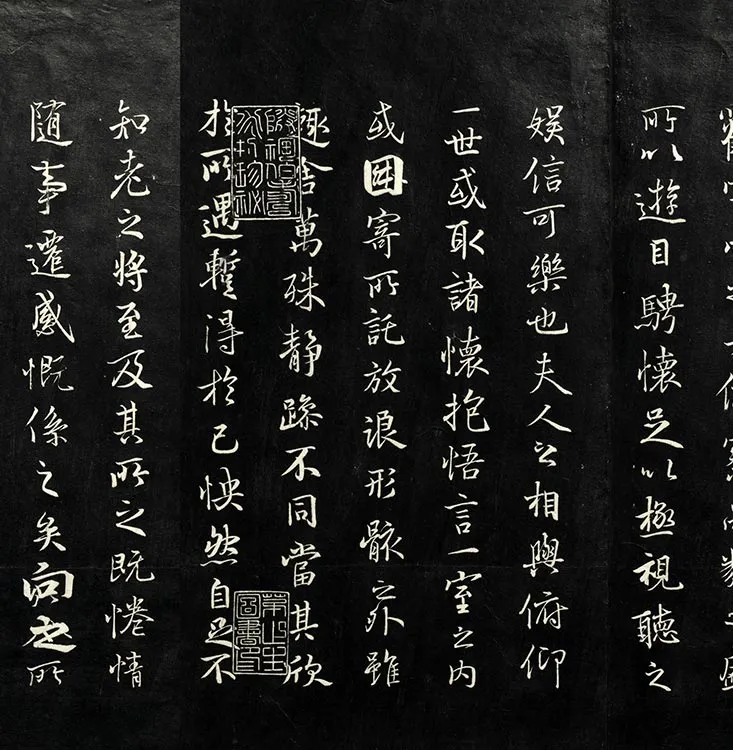 所以遊目騁懷足以極視聽之
娛信可樂也夫人之相與俯仰
一世或取諸懷抱悟言一室之內
或因寄所託放浪形骸之外雖
趣舍萬殊靜躁不同當其欣
於所遇蹔得於己怏然自足不
知老之將至及其所之既惓情
隨事遷感慨係之矣向之所